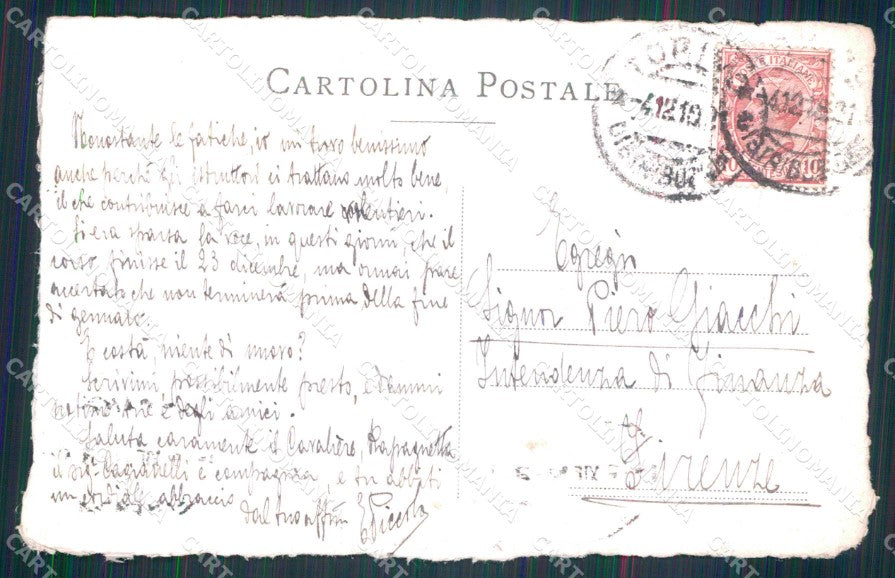 CARTOLINA POSTALE
Nonostante le fatiche, io mi trovo benissimo
anche perchè gli istruttori ci trattano molto bene
il che contribuisce a farci lavorare volentieri.
Si era sparsa la voce, in questi giorni, che il
corso finisse il 23 dicembre, ma ormai pare
accertato che non terminerà prima della fine
di gennaio.
E costà, niente di nuovo?
Scrivimi, possibilmente presto, e dammi
notizie tue e degli amici.
Saluta caramente il Cavaliere, Rapagnetta
il sig. e compagnia, e tu abbiti
un cordiale abbraccio
dal tuo affmo
Egregio
Signor Piero Giacchi
Intendenza di Finanza
Firenze
TORI
412.19
10
CARTOLINOMANIA